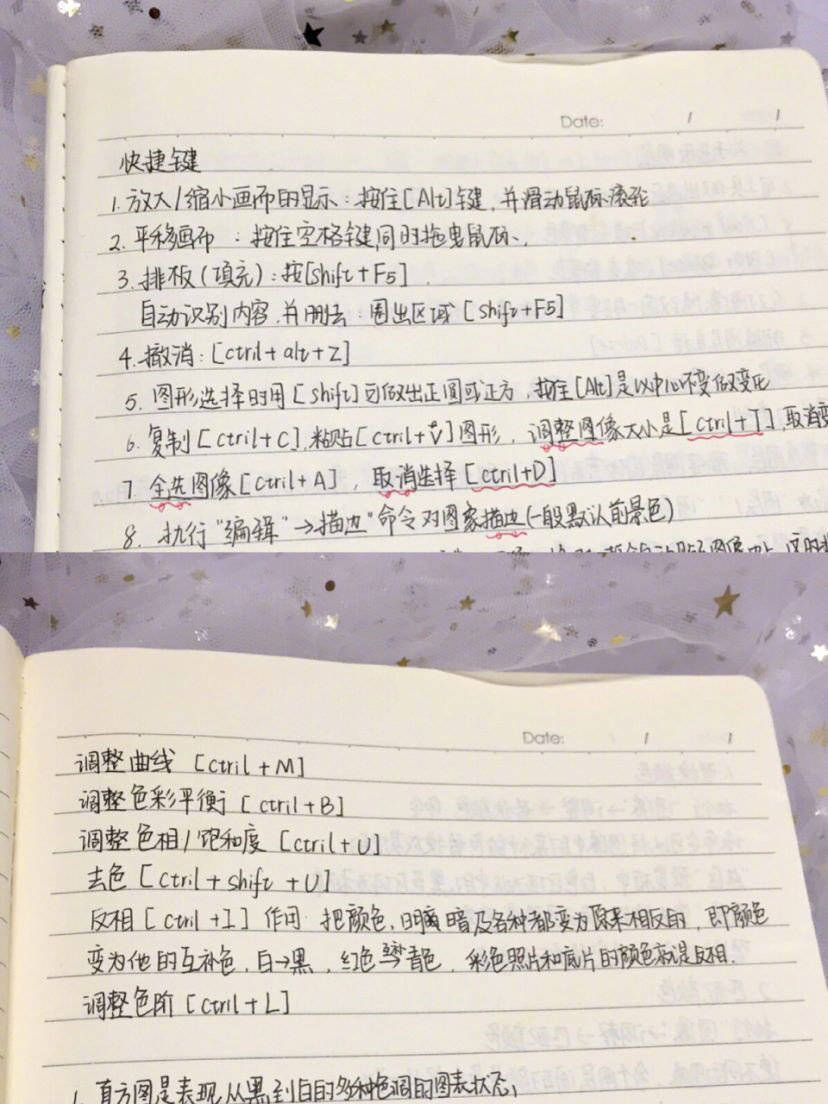 Date: / /
快捷键
1. 放大/缩小画布的显示：按住[Alt]键，并滑动鼠标滚轮
2. 平移画布：按住空格键同时拖曳鼠标、
3. 排板（填充）：按[shift+F5].
自动识别内容，并删去：圈出区域[shift+F5]
4. 撤消：[ctril+alt+Z]
5. 图形选择时用[shift]可做出正圆或正方，按住[Alt]是以中心不变做变化
6. 复制[ctril+C]，粘贴[ctril+V]图形，调整图像大小是[ctril+T]，取消变
7. 全选图像[ctril+A]，取消选择[ctril+D]
8. 执行"编辑"→描边"命令对图案描边(一般默认前景色)
Date: / /
调整曲线[ctril+M]
调整色彩平衡[ctril+B]
调整色相/饱和度[ctril+U]
去色[ctril+shift+U]
反相[ctril+I]作问 把颜色，明暗及各种都变为原来相反的，即颜色
变为他的互补色，白→黑，红色→青色，彩色照片和底片的颜色就是反相.
调整色阶[ctril+L]
1. 直方图是表现从黑到白的多种色调的图表状态；